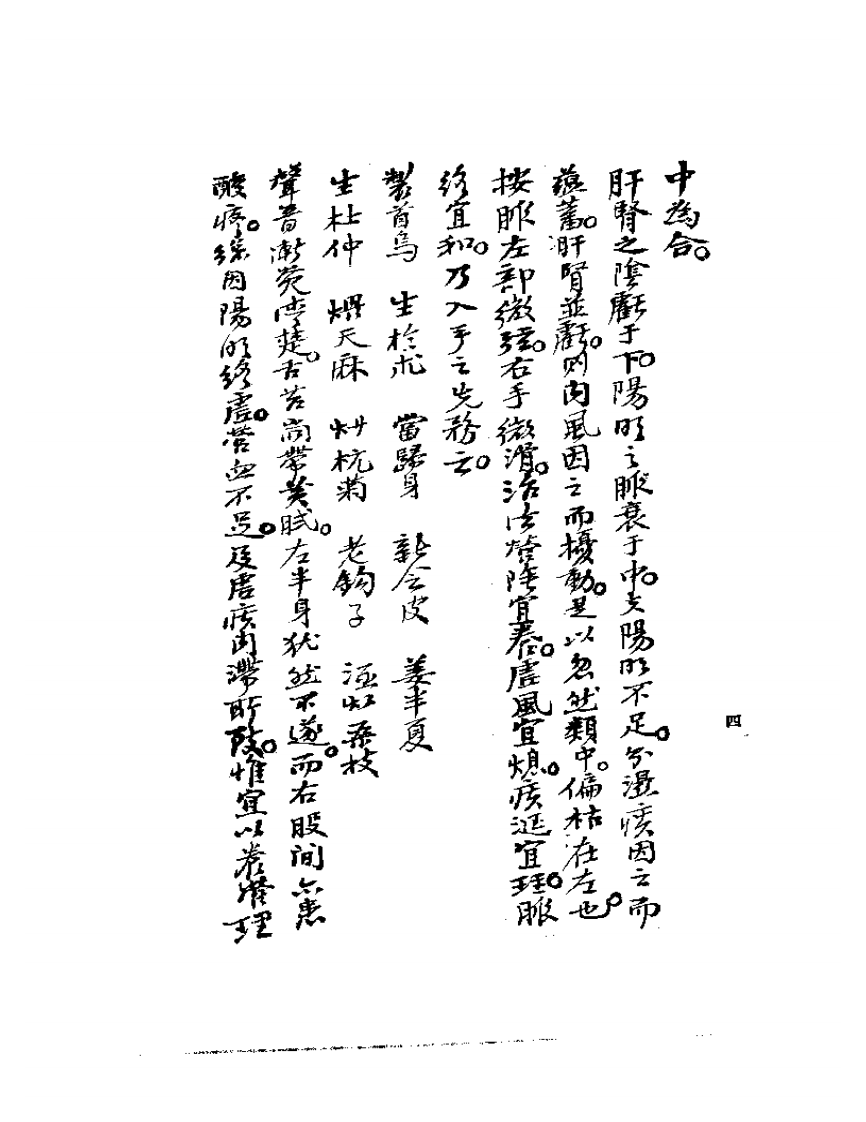 中為合。
肝腎之陰虧于下。陽明之脈衰于中。夫陽明不足。分濕痰因之而
蘊蓄。肝腎並虧。則内風因之而擾動。是以忽然類中。偏枯在左也。
按脈左部微弦。右手微滑。治法營陰宜養。虛風宜熄。痰涎宜理。脈
絡宜和。乃入手之先務云。
製首烏 生於朮 當歸身 新会皮 姜半夏
生杜仲 煨天麻 炒杭菊 老鈎子 酒炒桑枝
聲音漸覺清楚。舌苔尚帶黄膩。左半身犹然不遂。而右股間亦患
酸疼。緣因陽明絡虛。營血不足。及虛痰内滯所致。惟宜以養營理
四